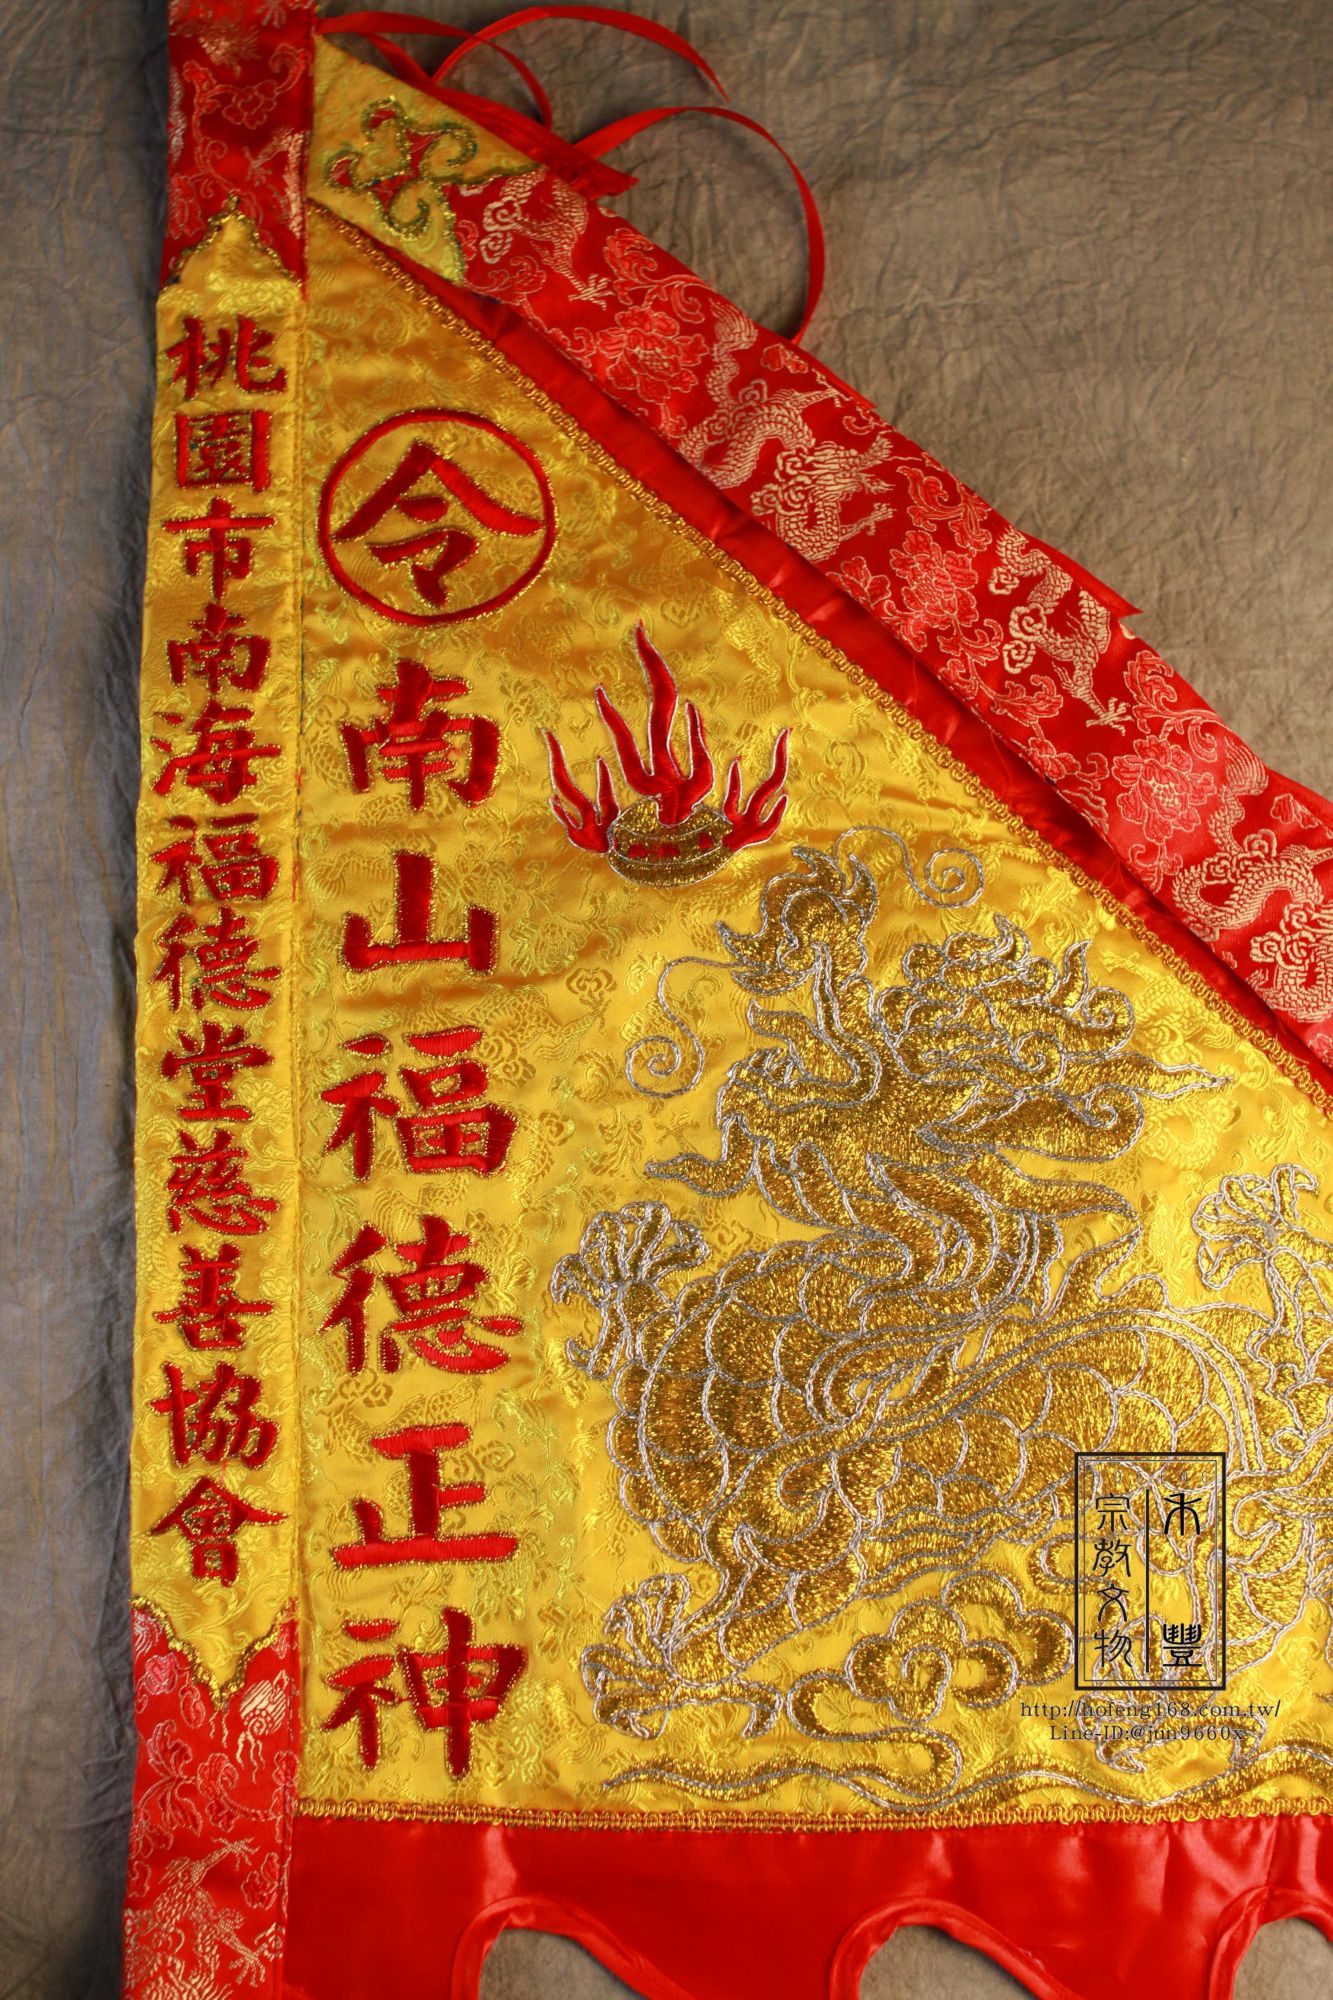 桃園市南海福德堂慈善協會
令
南山福德正神
禾豐
宗教文物
http://hofeng168.com.tw/
Line-ID:@jun9660x